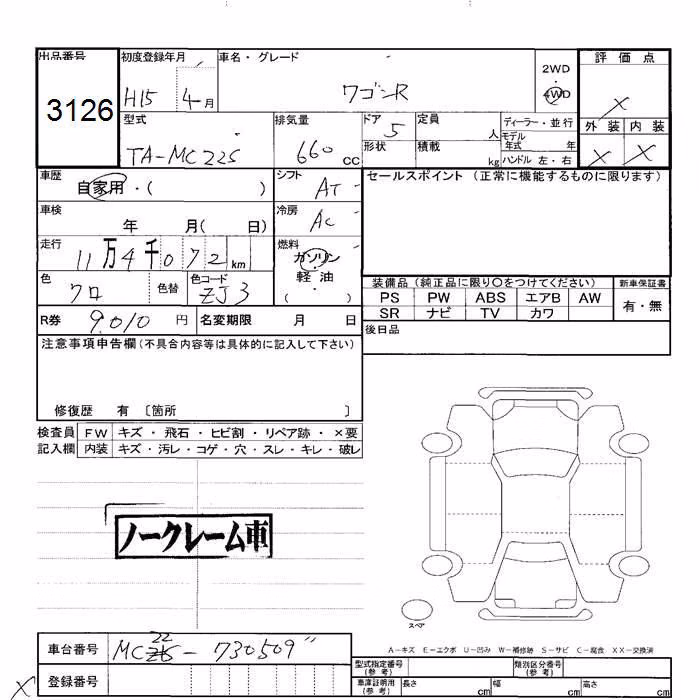 出品番号 初度登録年月 車名・グレード 2WD 評価点
3126 H15 4月 ワゴンR 4WD X
型式 排気量 ドア 5 定員 人 ディーラー・並行 外装 内装
モデル年式 年
TA-MC22S 660cc 形状 積載 kg ハンドル 左・右 X X
車歴 自家用・( ) シフト AT セールスポイント (正常に機能するものに限ります)
車検 年 月( 日) 冷房 AC
走行 11万4千072km 燃料 ガソリン
軽油
( )
色 クロ 色替 色コード ZJ3 装備品 (純正品に限り〇をつけてください) 新車保証書
PS PW ABS エアB AW 有・無
SR ナビ TV カワ
R券 9.010円 名変期限 月 日 後日品
注意事項申告欄(不具合内容等は具体的に記入して下さい)
修復歴 有 〔箇所 〕
検査員 FW キズ・飛石・ヒビ割・リペア跡・×要
記入欄 内装 キズ・汚レ・コゲ・穴・スレ・キレ・破レ
ノークレーム車
スペア
A−キズ E−エクボ U−凹み W−補修跡 S−サビ C−腐食 XX−交換済
車台番号 MC22S-730509"
型式指定番号(参考) 類別区分番号(参考)
X 登録番号 車庫証明用(参考) 長さ cm 幅 cm 高さ cm